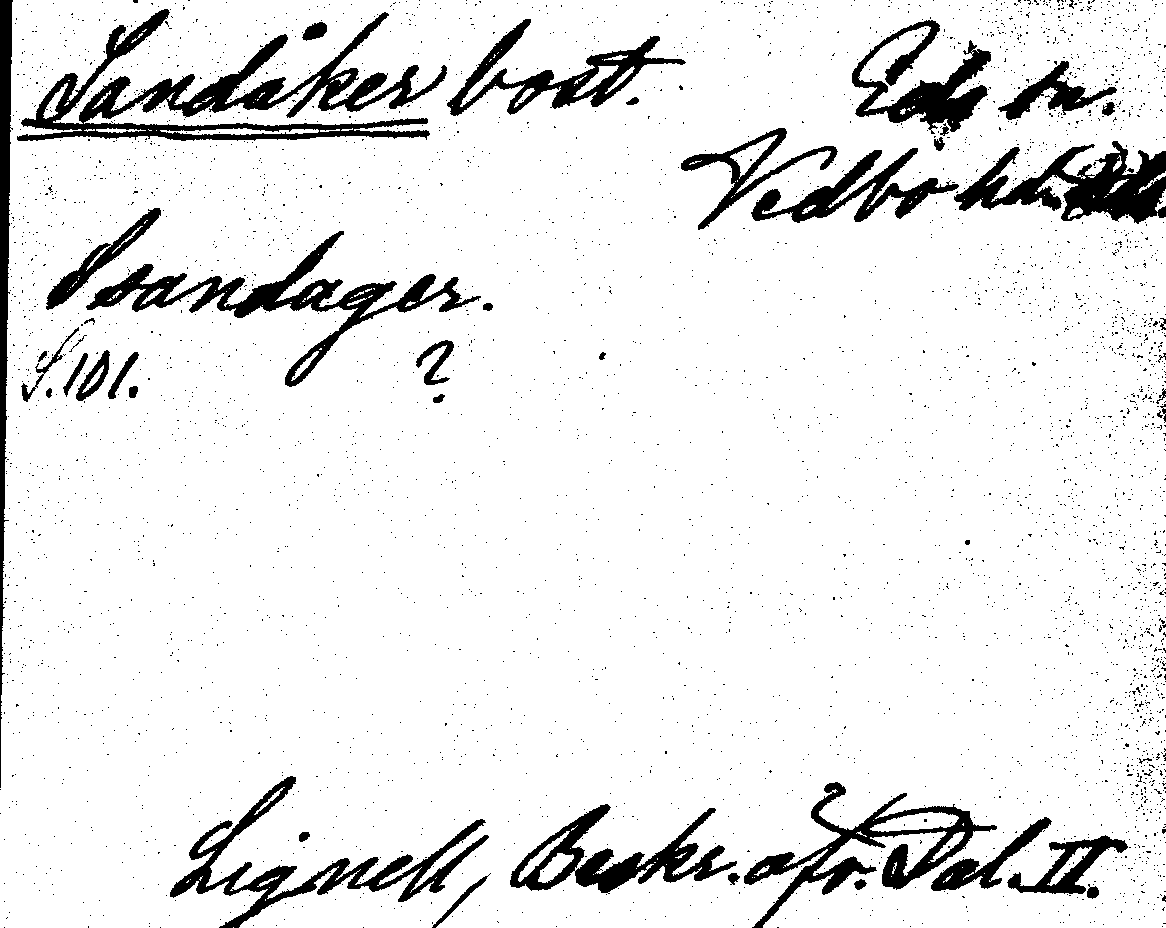 Sandåker bost. Eds sn.
Vedbo hd.
Ssandager.
S. 101. ?
Lignell, Beskr. öfv. Dal. II.